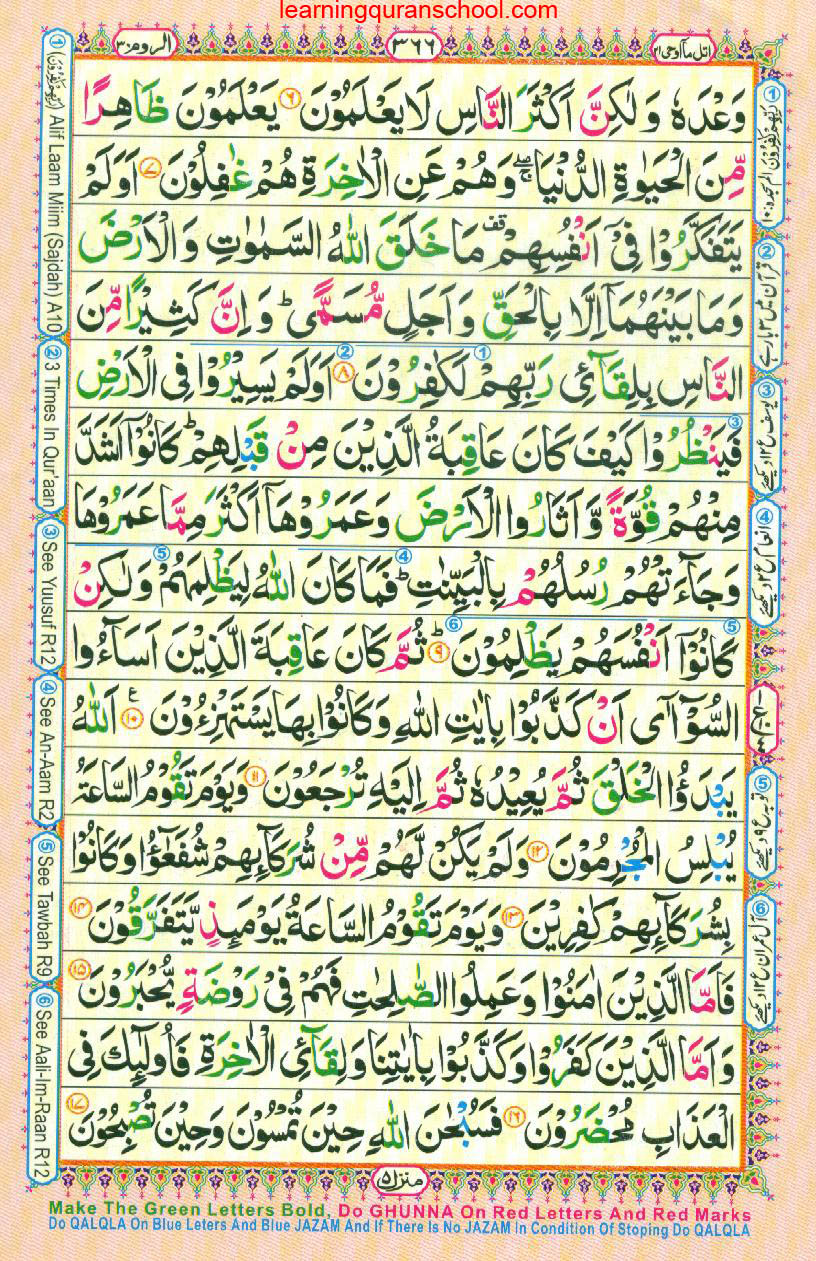 learningquranschool.com
الروم ٣٠
٣٦٦
اتل مآ اوحی ٢١
وَعْدَهٗ وَ لٰكِنَّ اَكْثَرَ النَّاسِ لَا يَعْلَمُوْنَ ٦ يَعْلَمُوْنَ ظَاهِرًا
مِّنَ الْحَيٰوةِ الدُّنْيَا ۖۚ وَهُمْ عَنِ الْاٰخِرَةِ هُمْ غٰفِلُوْنَ ٧ اَوَلَمْ
يَتَفَكَّرُوْا فِیْۤ اَنْفُسِهِمْ ۫ مَا خَلَقَ اللّٰهُ السَّمٰوٰتِ وَ الْاَرْضَ
وَ مَا بَيْنَهُمَاۤ اِلَّا بِالْحَقِّ وَ اَجَلٍ مُّسَمًّی ؕ وَ اِنَّ كَثِيْرًا مِّنَ
النَّاسِ بِلِقَآئِ رَبِّهِمْ لَكٰفِرُوْنَ ٨ اَوَلَمْ يَسِيْرُوْا فِی الْاَرْضِ
فَيَنْظُرُوْا كَيْفَ كَانَ عَاقِبَةُ الَّذِيْنَ مِنْ قَبْلِهِمْ ؕ كَانُوْۤا اَشَدَّ
مِنْهُمْ قُوَّةً وَّ اَثَارُوا الْاَرْضَ وَعَمَرُوْهَاۤ اَكْثَرَ مِمَّا عَمَرُوْهَا
وَجَآءَتْهُمْ رُسُلُهُمْ بِالْبَيِّنٰتِ ؕ فَمَا كَانَ اللّٰهُ لِيَظْلِمَهُمْ وَلٰكِنْ
كَانُوْۤا اَنْفُسَهُمْ يَظْلِمُوْنَ ٩ ؕ ثُمَّ كَانَ عَاقِبَةَ الَّذِيْنَ اَسَآءُوا
السُّوْٓاٰۤی اَنْ كَذَّبُوْا بِاٰيٰتِ اللّٰهِ وَكَانُوْا بِهَا يَسْتَهْزِءُوْنَ ١٠ ع اَللّٰهُ
يَبْدَؤُا الْخَلْقَ ثُمَّ يُعِيْدُهٗ ثُمَّ اِلَيْهِ تُرْجَعُوْنَ ١١ وَيَوْمَ تَقُوْمُ السَّاعَةُ
يُبْلِسُ الْمُجْرِمُوْنَ ١٢ وَلَمْ يَكُنْ لَّهُمْ مِّنْ شُرَكَآئِهِمْ شُفَعٰٓؤُا وَكَانُوْا
بِشُرَكَآئِهِمْ كٰفِرِيْنَ ١٣ وَيَوْمَ تَقُوْمُ السَّاعَةُ يَوْمَئِذٍ يَّتَفَرَّقُوْنَ ١٤
فَاَمَّا الَّذِيْنَ اٰمَنُوْا وَعَمِلُوا الصّٰلِحٰتِ فَهُمْ فِیْ رَوْضَةٍ يُّحْبَرُوْنَ ١٥
وَ اَمَّا الَّذِيْنَ كَفَرُوْا وَكَذَّبُوْا بِاٰيٰتِنَا وَلِقَآئِ الْاٰخِرَةِ فَاُولٰٓئِكَ فِی
الْعَذَابِ مُحْضَرُوْنَ ١٦ فَسُبْحٰنَ اللّٰهِ حِيْنَ تُمْسُوْنَ وَحِيْنَ تُصْبِحُوْنَ ١٧
منزل ٥
① (ربهم كٰفرون) Alif Laam Miim (Sajdah) A10
② 3 Times In Qur'aan
③ See Yuusuf R12
④ See An-Aam R2
⑤ See Tawbah R9
⑥ See Aali-Im-Raan R12
② قرآن میں ٣ بار ہے
③ یوسف ع ١٢ دیکھئے
④ انعام ع ٢ دیکھئے
⑤ توبہ ع ٩ دیکھئے
⑥ آل عمران ع ١٢ دیکھئے
Make The Green Letters Bold, Do GHUNNA On Red Letters And Red Marks
Do QALQLA On Blue Leters And Blue JAZAM And If There Is No JAZAM In Condition Of Stoping Do QALQLA